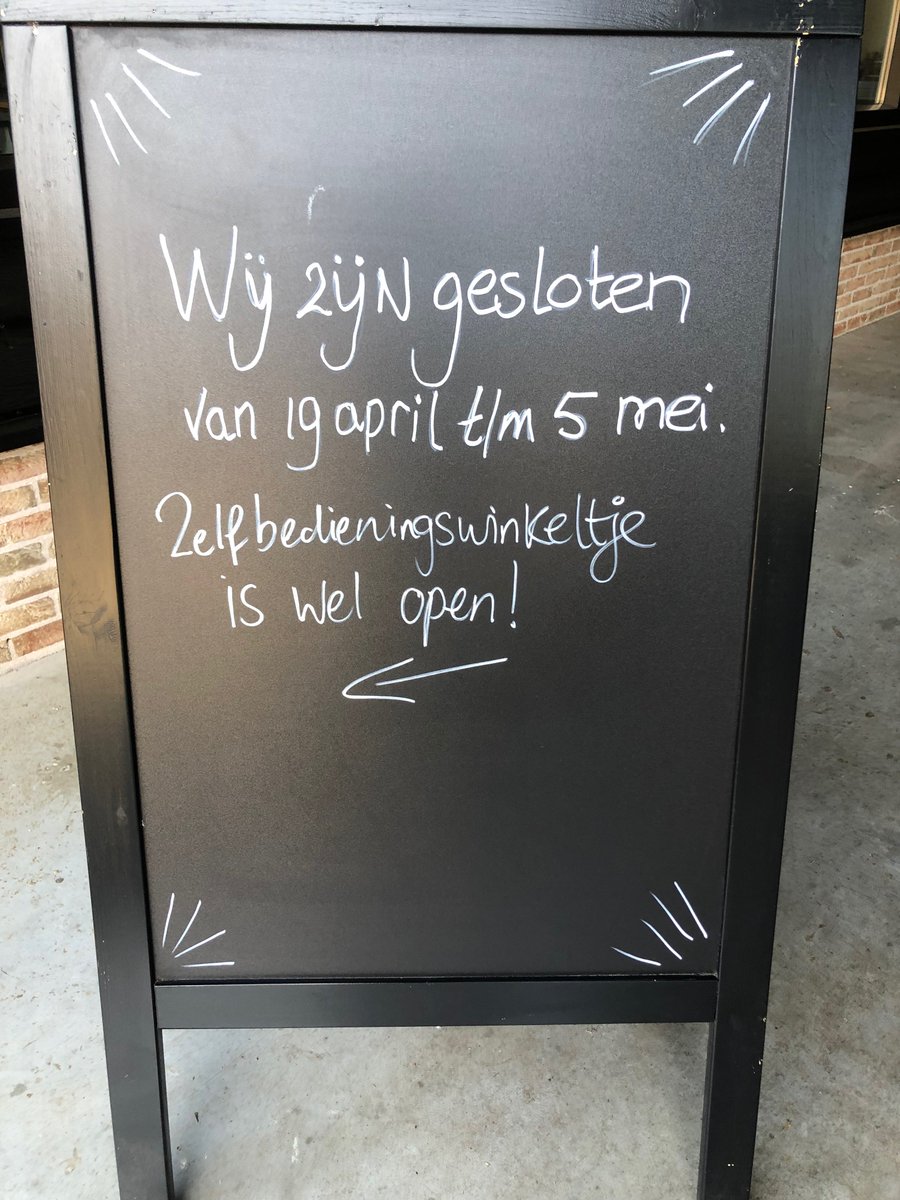 Wij zijn gesloten
van 19 april t/m 5 mei.
Zelfbedieningswinkeltje
is wel open!